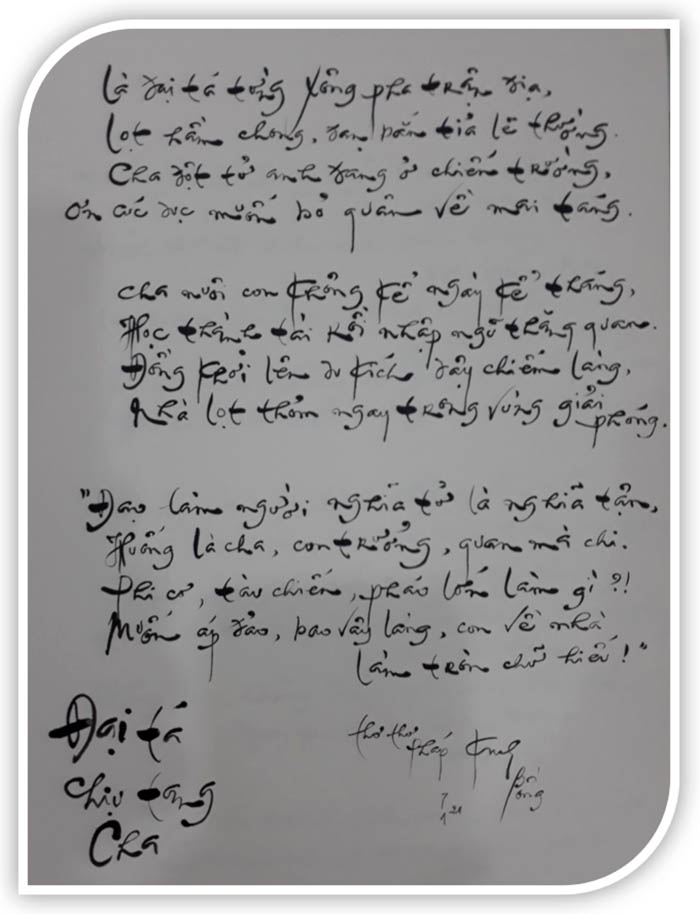 Là đại tá từng xông pha trận địa,
Lọt hầm chông, đạn bắn tỉa lẽ thường.
Cha đột tử anh đang ở chiến trường,
Ơn cúc dục muốn bỏ quân về mai táng.
Cha nuôi con không kể ngày kể tháng,
Học thành tài rồi nhập ngũ thăng quan.
Đồng khởi lên du kích dậy chiếm làng,
Nhà lọt thỏm ngay trong vùng giải phóng.
"Đạo làm người nghĩa tử là nghĩa tận,
Huống là cha, con trưởng, quan mà chi.
Phi cơ, tàu chiến, pháo lớn làm gì?!
Muốn áp đảo, bao vây làng, con về nhà
làm tròn chữ hiếu!"
Đại tá
chịu tang
Cha
thơ thơ
7
1 21